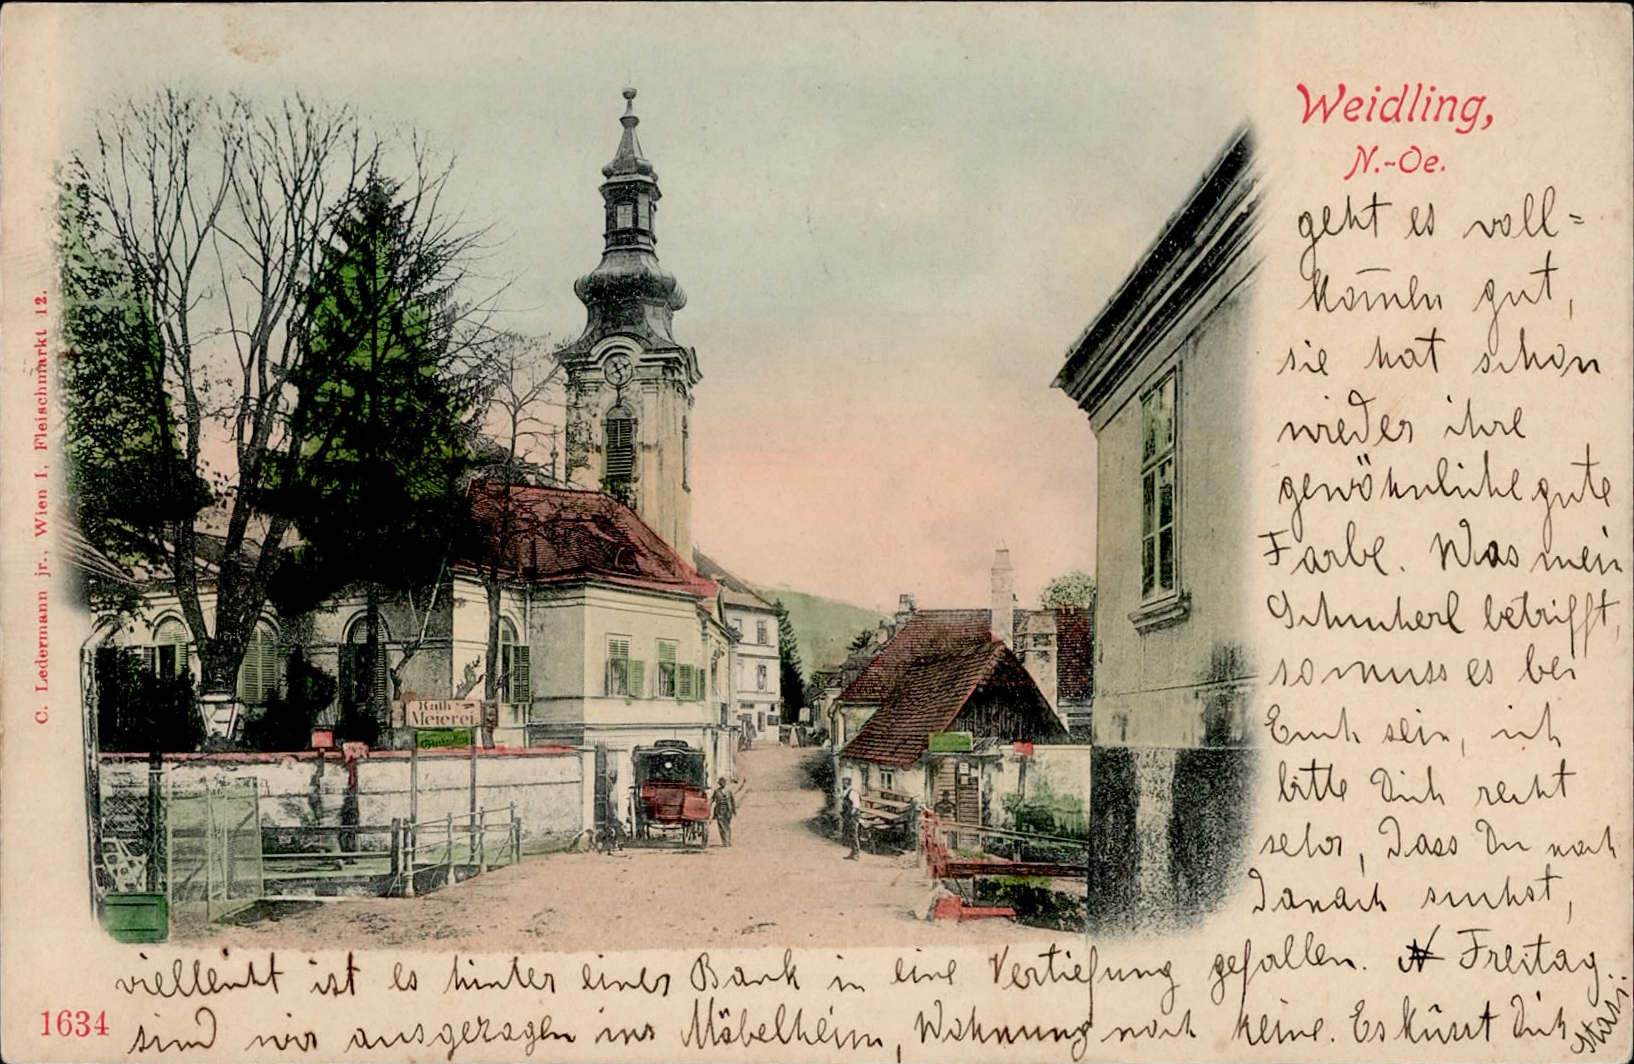 Weidling,
N.-Oe.
geht es voll=
kom̄en gut,
sie hat schon
wieder ihre
gewöhnliche gute
Farbe. Was mein
betrifft,
so muss es bei
Euch sein, ich
bitte Dich recht
sehr, dass Du noch
danach suchst,
vielleicht ist es hinter einer Bank in eine Vertiefung gefallen. Freitag
sind wir ausgezogen ins Möbelheim, Wohnung noch keine. Es küsst Dich
C. Ledermann jr., Wien I, Fleischmarkt 12.
1634
Meierei